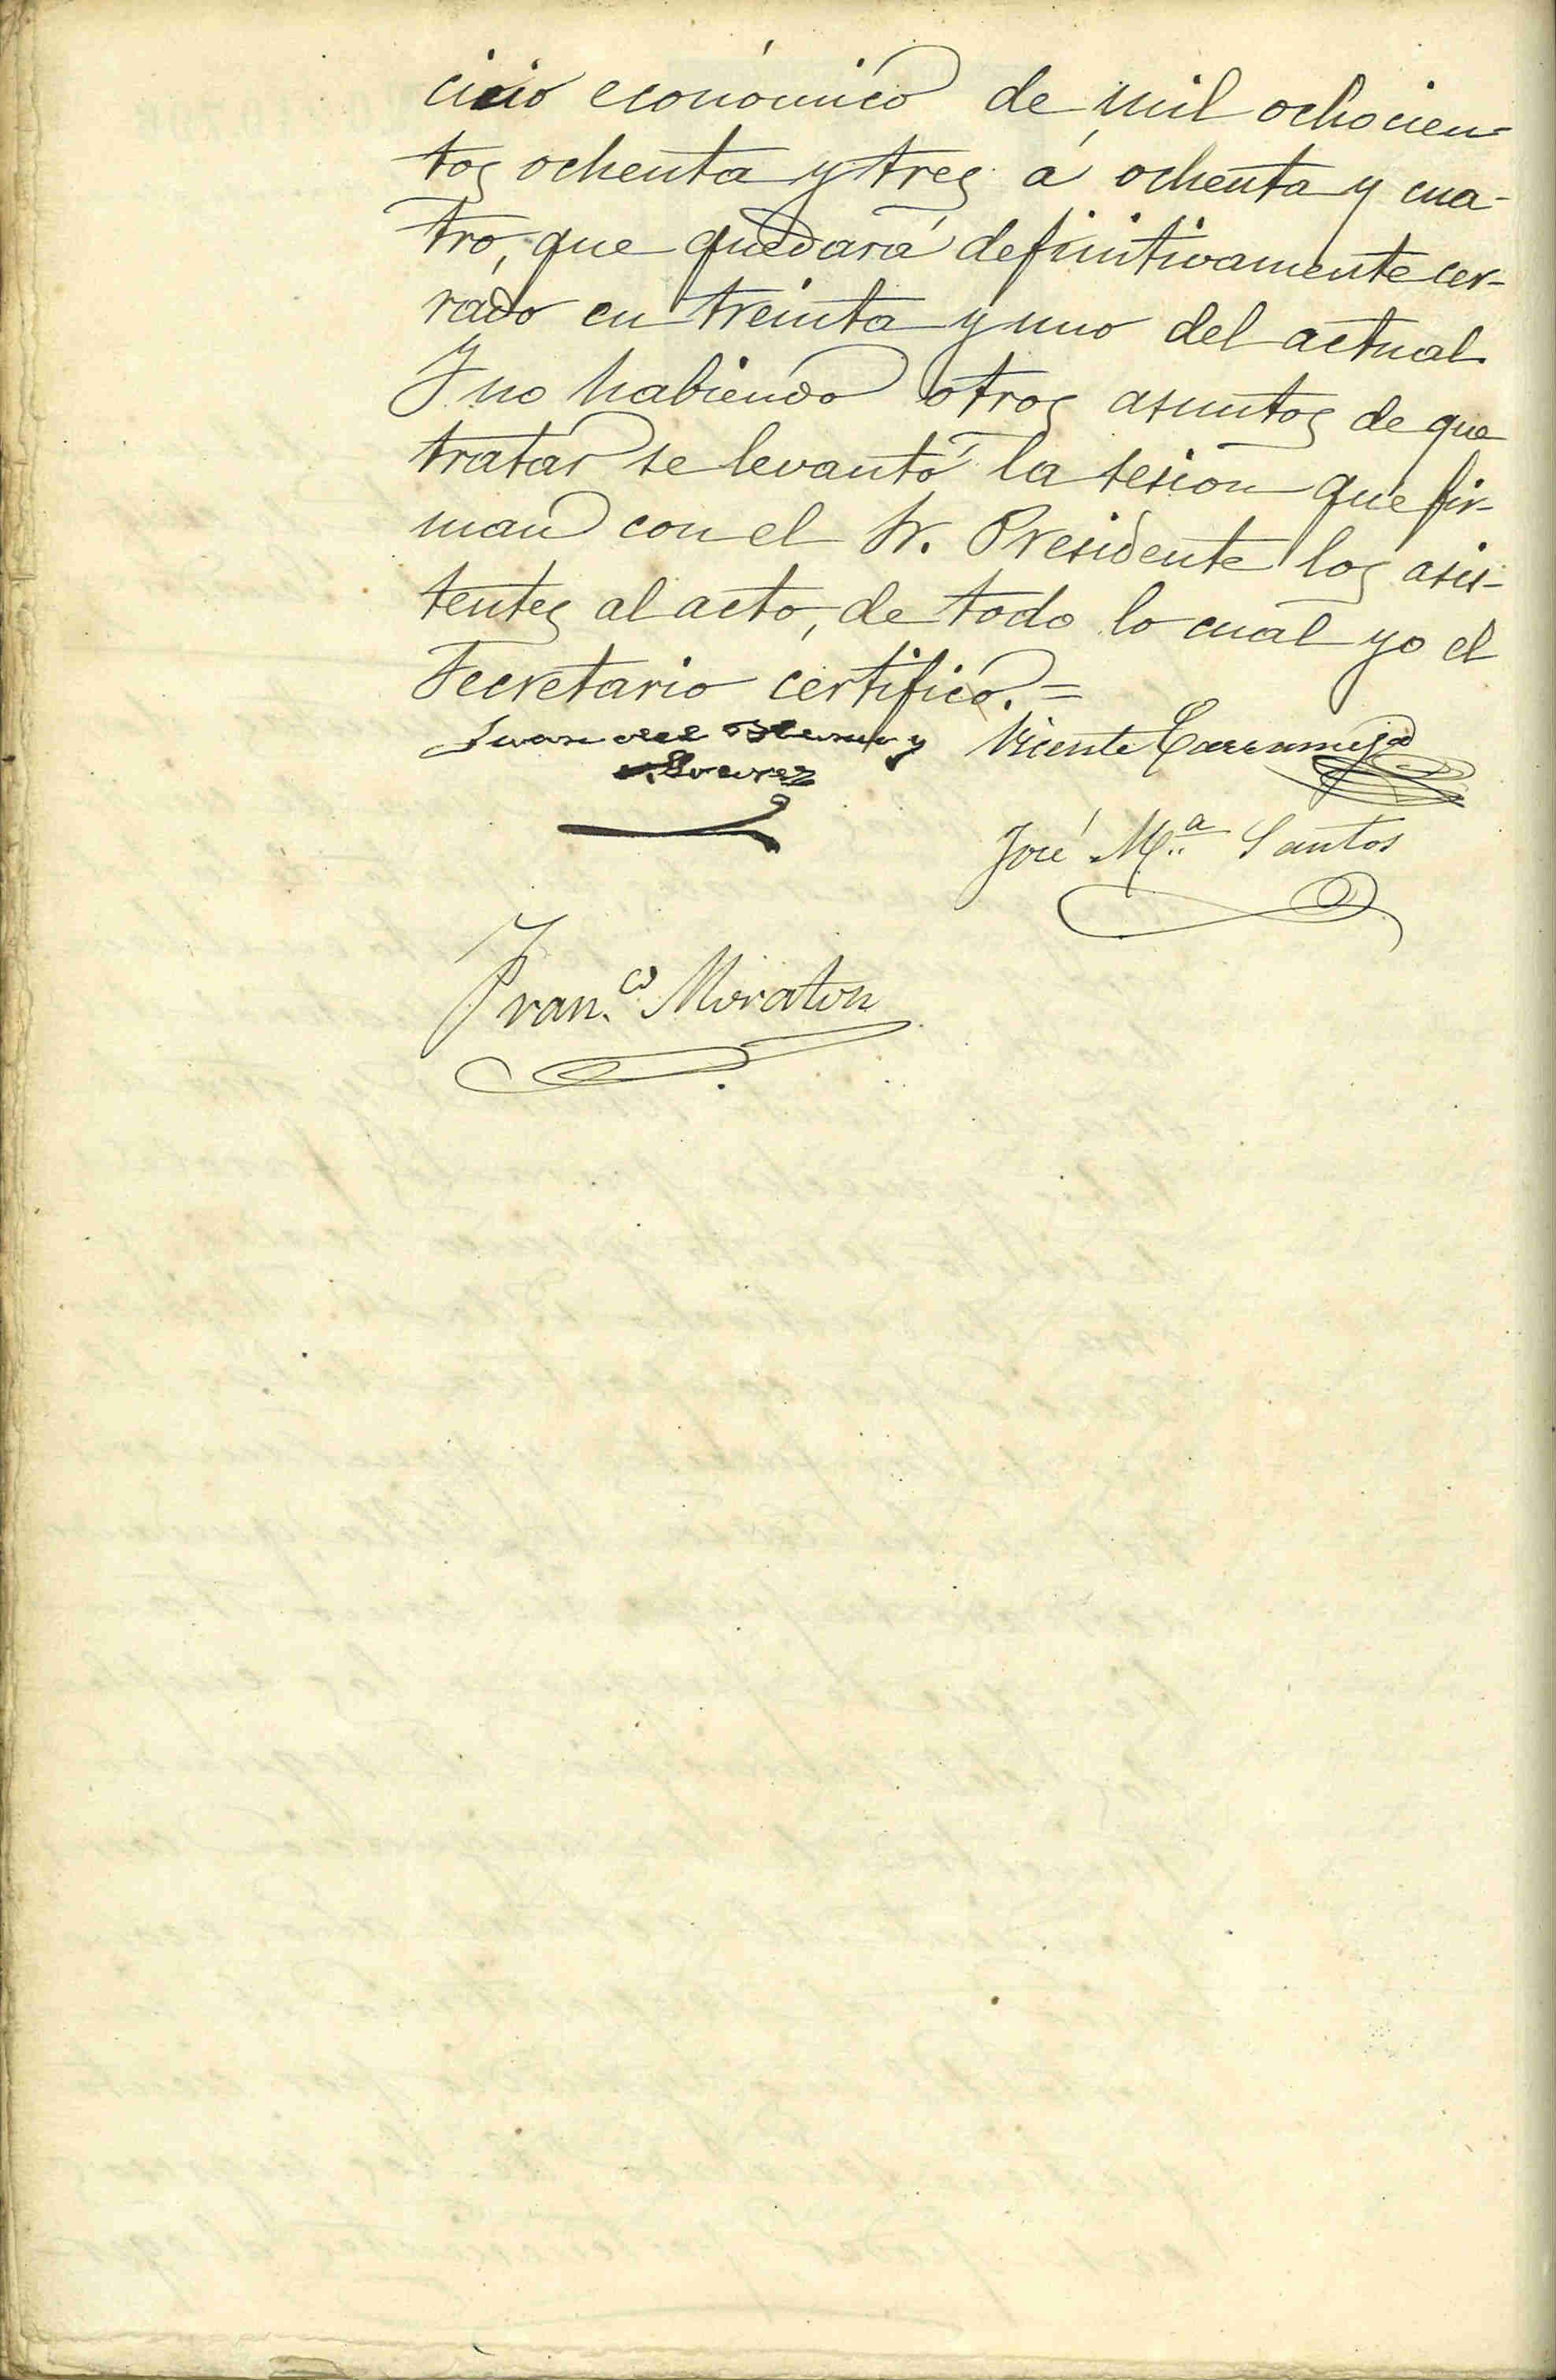 cicio económico de mil ochocien-
tos ochenta y tres á ochenta y cua-
tro, que quedará definitivamente cer-
rado en treinta y uno del actual.
Y no habiendo otros asuntos de que
tratar se levantó la sesion que fir-
man con el Sr. Presidente los asis-
tentes al acto, de todo lo cual yo el
Secretario certifico. =
Juan del y Vicente
Alvarez
José M.ª Santos
Fran.co Moraton